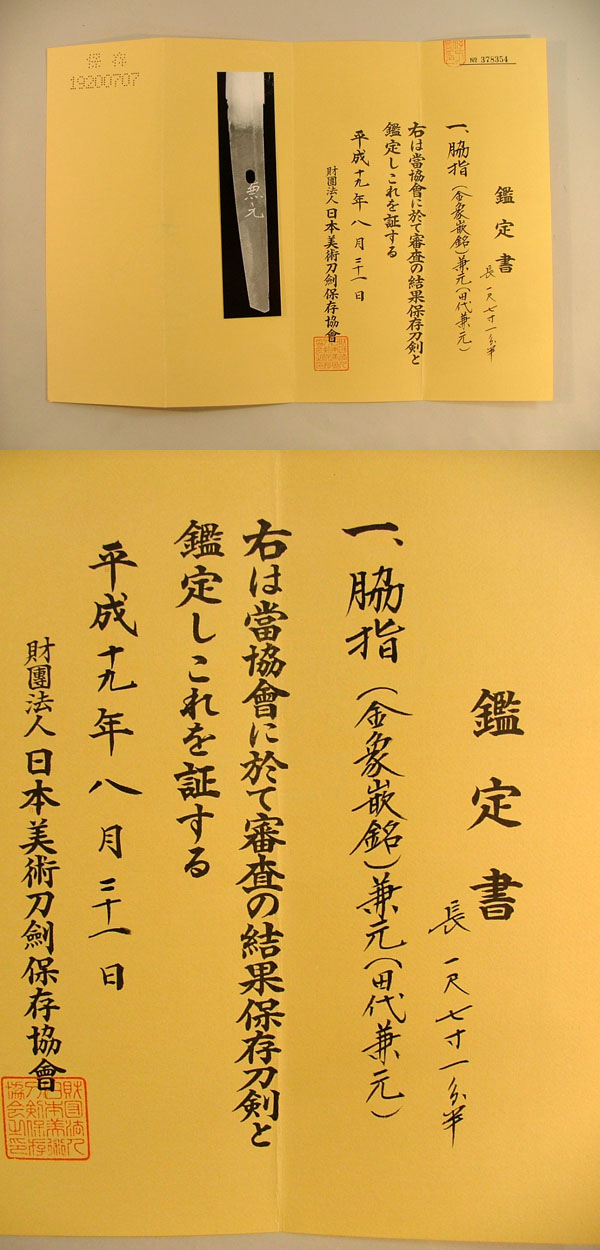 保存
19200707
兼元
№ 378354
鑑定書
長一尺七寸一分半
一、脇指（金象嵌銘）兼元（田代兼元）
右は當協會に於て審査の結果保存刀剣と
鑑定しこれを証する
平成十九年八月三十一日
財團法人日本美術刀劍保存協會
鑑定書
長一尺七寸一分半
一、脇指（金象嵌銘）兼元（田代兼元）
右は當協會に於て審査の結果保存刀剣と
鑑定しこれを証する
平成十九年八月三十一日
財團法人日本美術刀劍保存協會
財団法人
日本美術
刀剣保存
協会之印